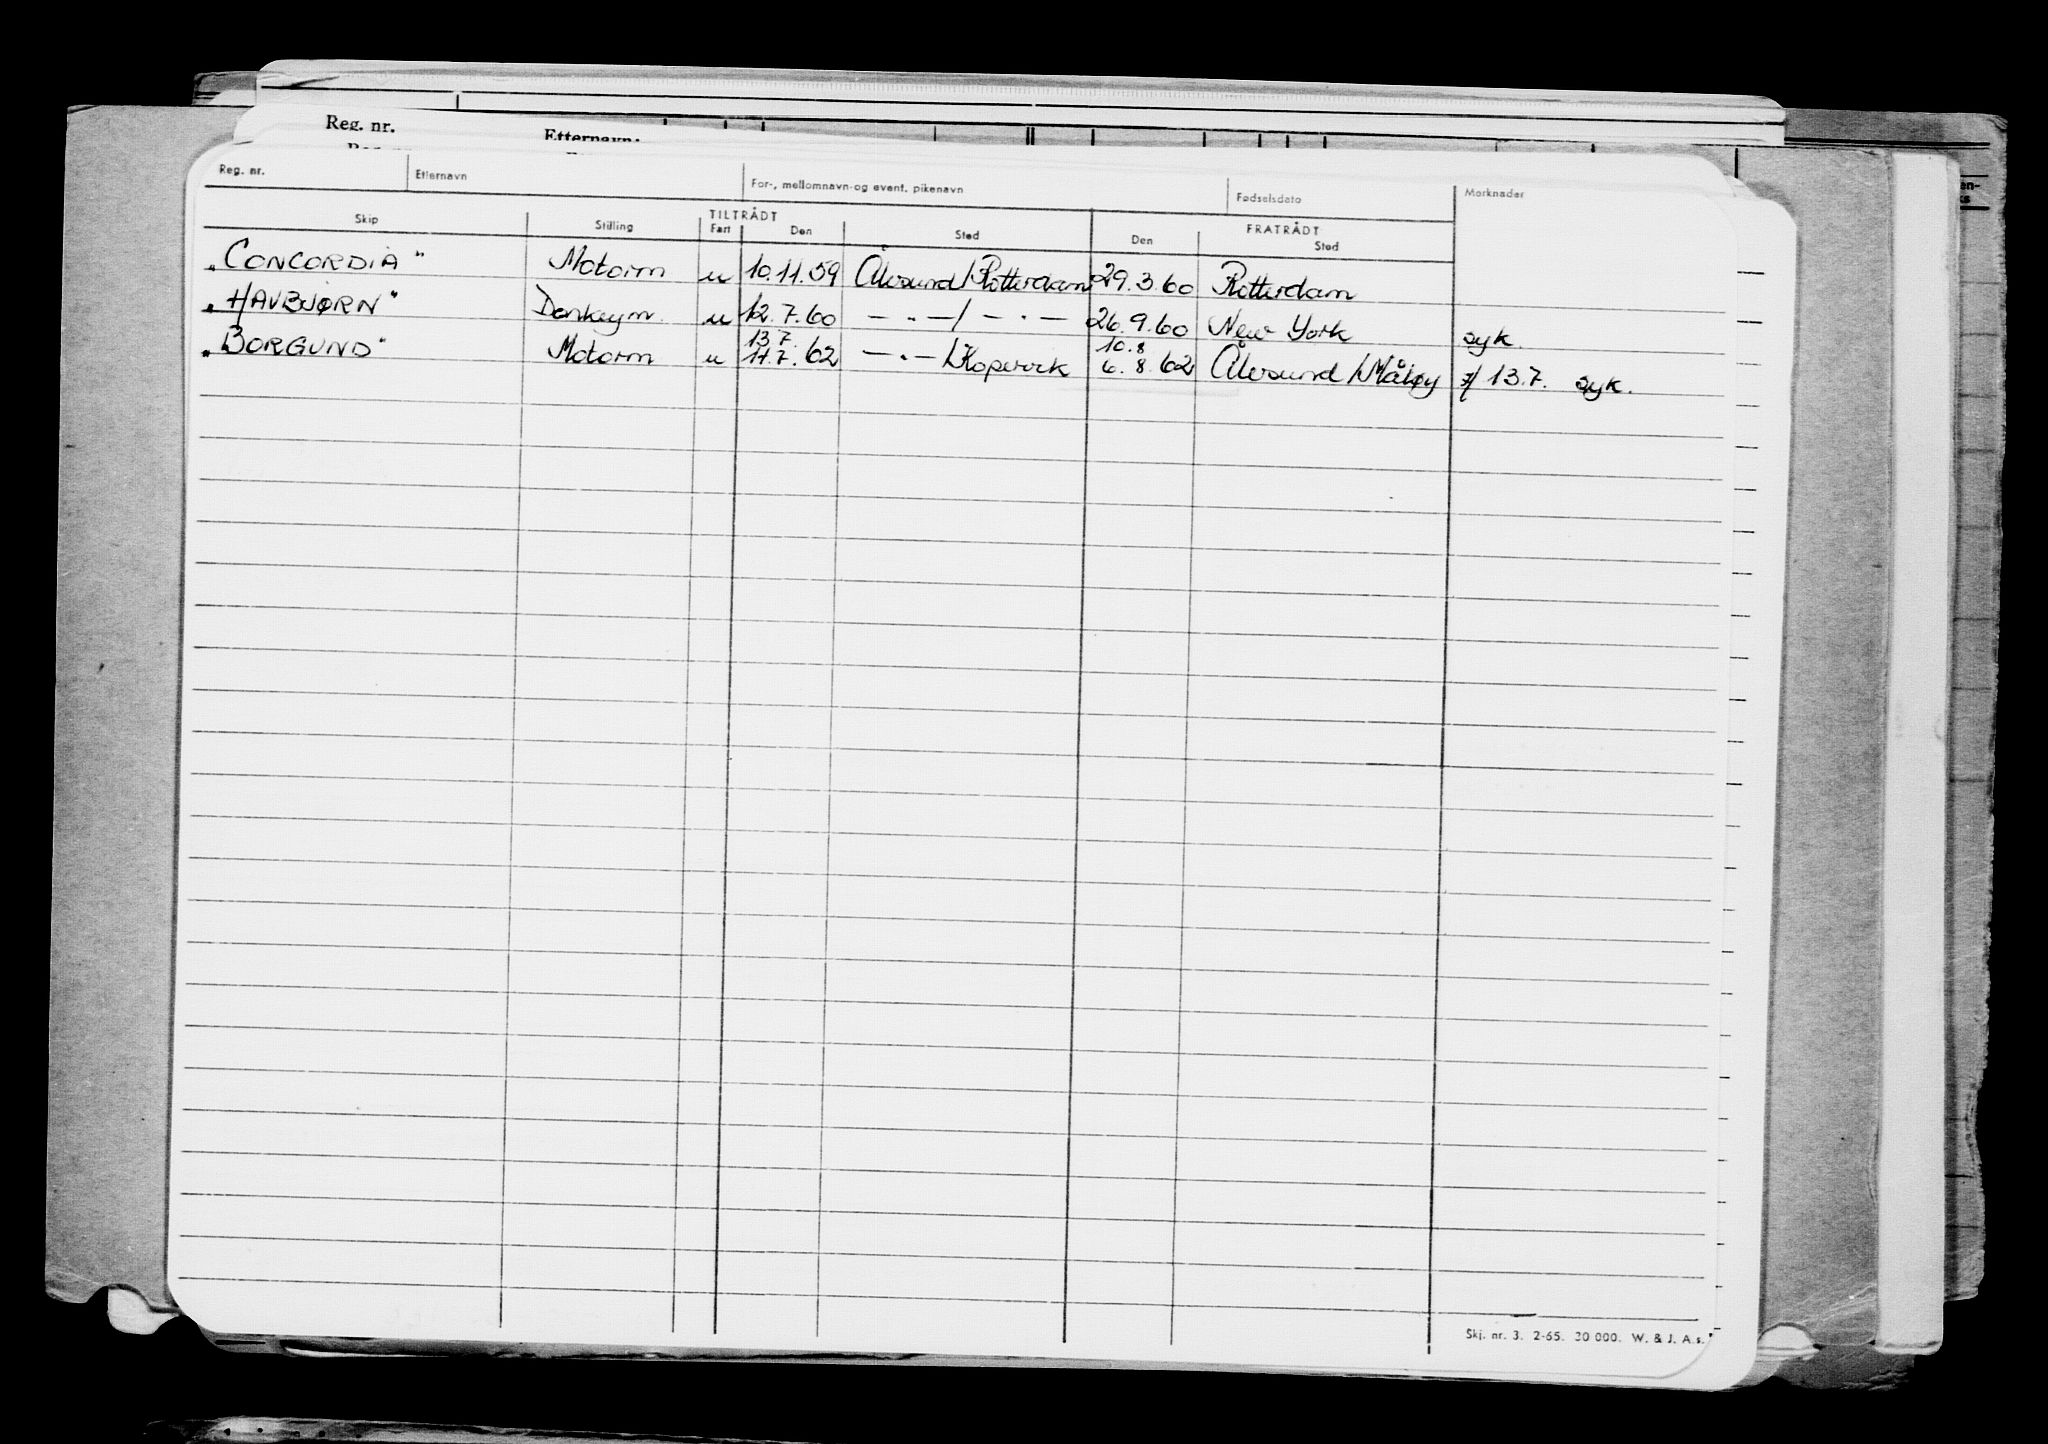 Reg. nr. Etternavn:
Reg. nr. Etternavn For-, mellomnavn og event. pikenavn Fødselsdato Merknader
TILTRÅDT FRATRÅDT
Skip Stilling Fart Den Sted Den Sted
"CONCORDIA" Motorm u 10.11.59 Ålesund/Rotterdam 29.3.60 Rotterdam
"HAVBJØRN" Donkeym. u 12.7.60 — " — / — " — 26.9.60 New York syk.
13.7. 10.8
"BORGUND" Motorm u 11.7.62 — " — /Kopervik 6.8.62 Ålesund/Måløy 13.7. syk.
Skj. nr. 3. 2-65. 30 000. W. & J. A.s.